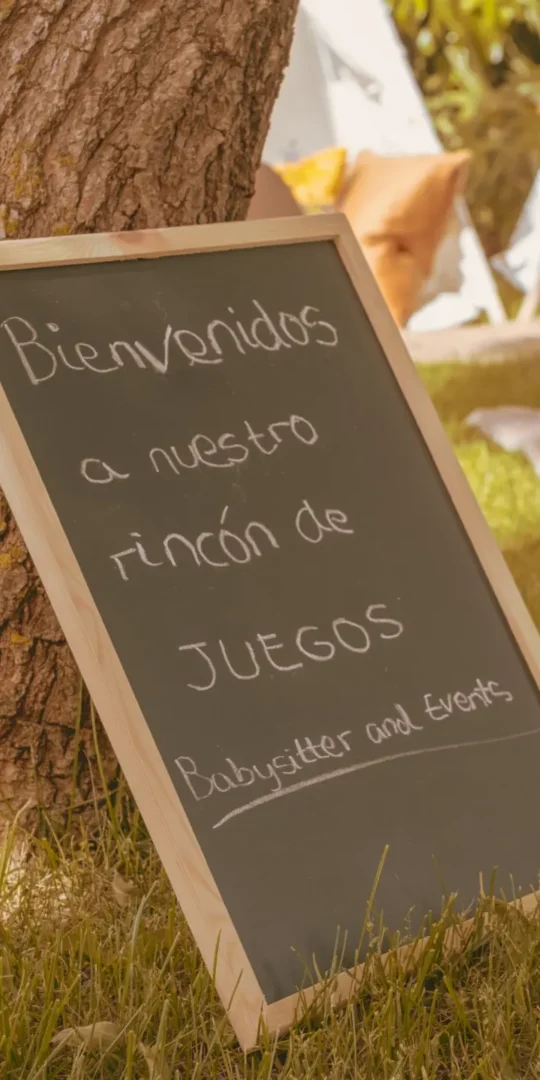 Bienvenidos
a nuestro
rincón de
JUEGOS
Babysitter and Events